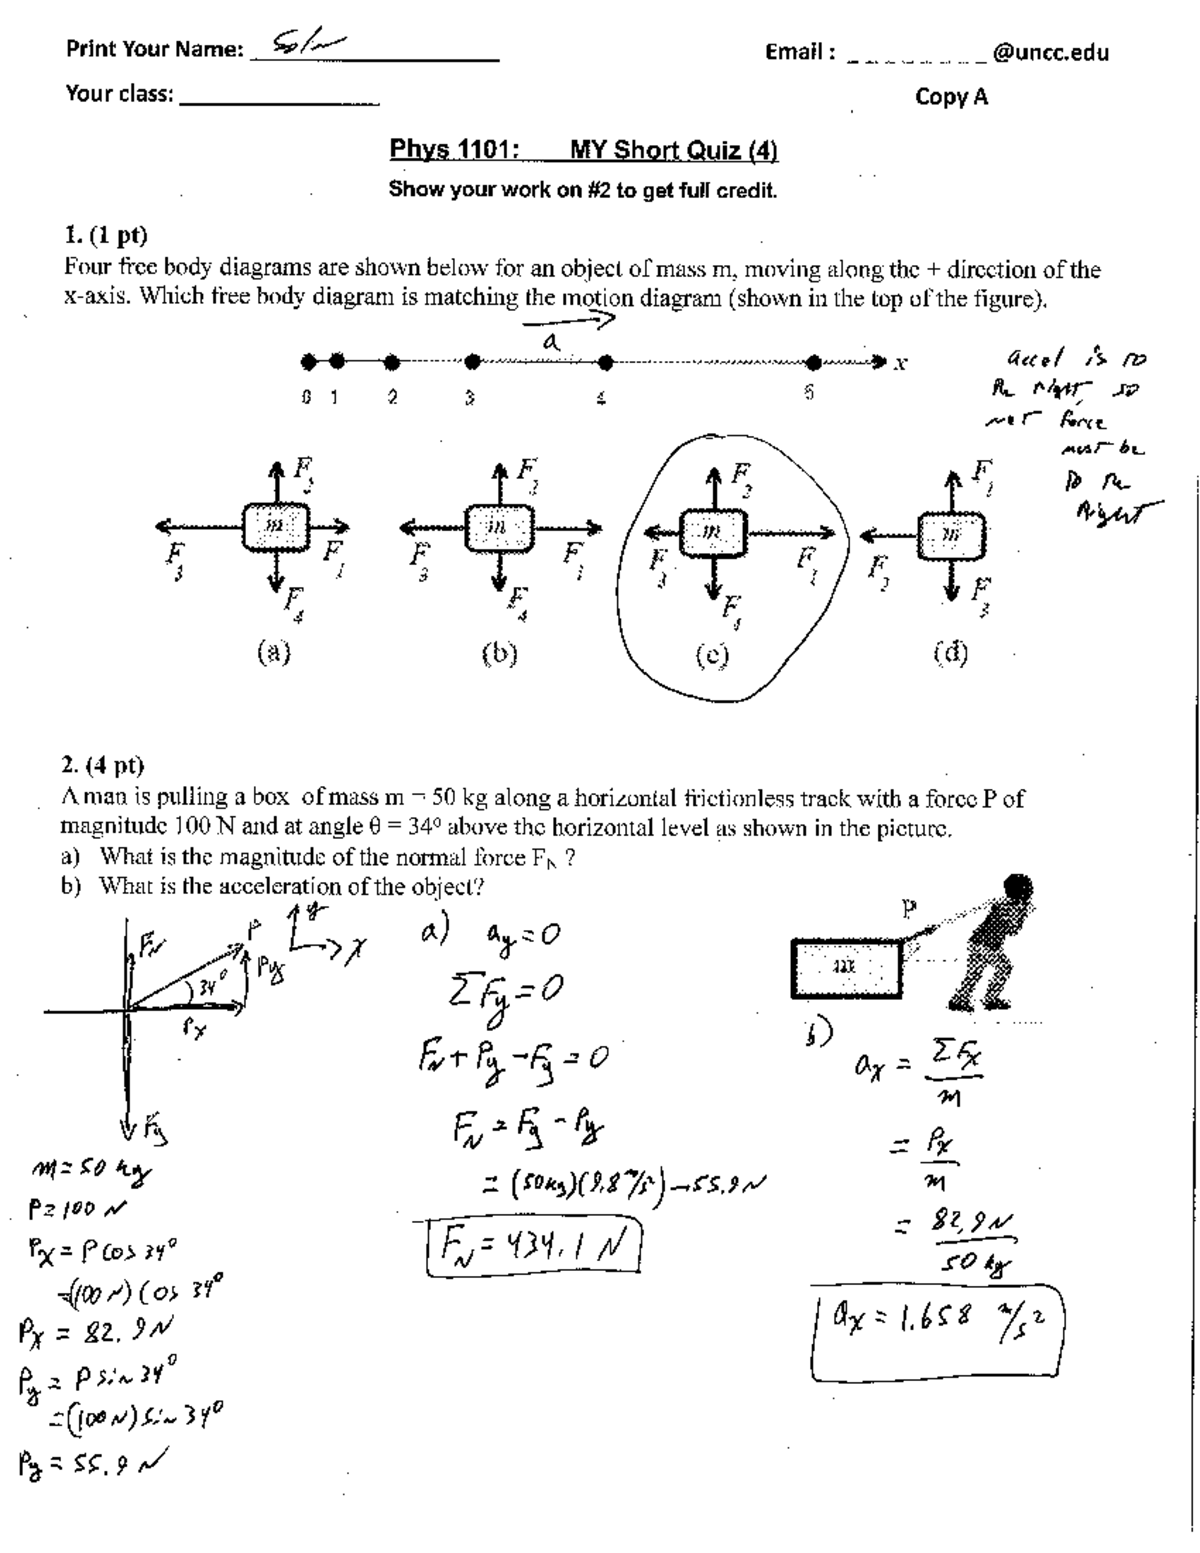 Print Your Name: soln
Email : _ _ _ _ _ _ _ _ @uncc.edu
Your class:
Copy A
Phys 1101: MY Short Quiz (4)
Show your work on #2 to get full credit.
1. (1 pt)
Four free body diagrams are shown below for an object of mass m, moving along the + direction of the
x-axis. Which free body diagram is matching the motion diagram (shown in the top of the figure).
a
x
0 1 2 3 4 5
accel is to
the right, so
net force
must be
to the
right
F2 F2 F2 F1
m m m m
F3 F1 F3 F1 F3 F1 F2
F4 F4 F4 F3
(a) (b) (c) (d)
2. (4 pt)
A man is pulling a box of mass m = 50 kg along a horizontal frictionless track with a force P of
magnitude 100 N and at angle θ = 34º above the horizontal level as shown in the picture.
a) What is the magnitude of the normal force FN ?
b) What is the acceleration of the object?
FN P Py 34° Px Fg
y x
P
m
m = 50 kg
P = 100 N
Px = P cos 34°
=(100 N) cos 34°
Px = 82.9 N
Py = P sin 34°
=(100 N) sin 34°
Py = 55.9 N
a) ay = 0
ΣFy = 0
FN + Py - Fg = 0
FN = Fg - Py
= (50 kg)(9.8 m/s²) - 55.9 N
FN = 434.1 N
b)
ax = ΣFx / m
= Px / m
= 82.9 N / 50 kg
ax = 1.658 m/s²